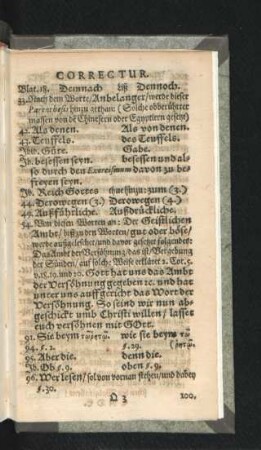 CORRECTUR.
Blat. 18. Demnach liß Dennoch.
33. Hinter dem Worte/ Anbelanger/ werde dieser
Parenthesis hinzu gethan: (Solche obberührter
massen von de Chinesern oder Egyptiern gesetzt)
42. Als denen. Als von denen.
43. Teuffels. des Teuffels.
Ibid. Güte. Gabe.
Ib. besessen seyn. besessen und al-
so durch den Exorcismum davon zu be-
freyen seyn.
Ib. Reich Gottes thue hinzu: zum (3.)
44. Derowegen (3.) Derowegen (4.)
49. Außführliche. Außdrückliche.
54. Von diesen Worten an: Der Geistlichen
Ambt/ biß zu den Worten/ gut oder böse/
werde außgeleschet/ und davor gesetzet folgendes:
Das Ambt der Versöhnung/ das ist/ Vergebung
der Sünden/ auf solche Weise erkläret 2. Cor. 5.
v. 18. 19. 20. Gott hat uns das Ambt
der Versöhnung gegeben ec. und hat
unter uns auffgericht das Wort der
Versöhnung. So seind wir nun ab-
geschickt umb Christi willen/ lasset
euch versöhnen mit GOtt.
91. Sie beym wie sie beym
94. s. 2. s. 29.
94. Aber die. denn die.
Ib. Ob s. 9. oben s. 9.
96. Wer lesen/ sol von vornan stehen/ und dabey
s. 30.
3 100.